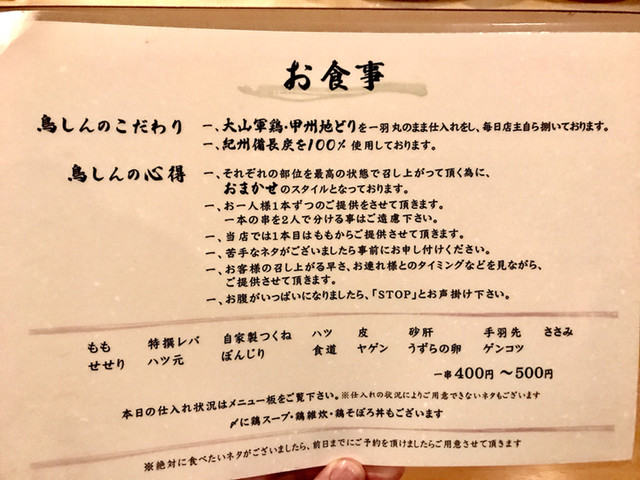 お食事
鳥しんのこだわり
一、大山軍鶏・甲州地どりを一羽丸のまま仕入れをし、毎日店主自ら捌いております。
一、紀州備長炭を100%使用しております。
鳥しんの心得
一、それぞれの部位を最高の状態で召し上がって頂く為に、
おまかせのスタイルとなっております。
一、お一人様1本ずつのご提供をさせて頂きます。
一本の串を2人で分ける事はご遠慮下さい。
一、当店では1本目はももからご提供させて頂きます。
一、苦手なネタがございましたら事前にお申し付けください。
一、お客様の召し上がる早さ、お連れ様とのタイミングなどを見ながら、
ご提供させて頂きます。
一、お腹がいっぱいになりましたら、「STOP」とお声掛け下さい。
もも 特撰レバ 自家製つくね ハツ 皮 砂肝 手羽先 ささみ
せせり ハツ元 ぼんじり 食道 ヤゲン うずらの卵 ゲンコツ
一串400円〜500円
本日の仕入れ状況はメニュー板をご覧下さい。※仕入れの状況によりご用意できないネタもございます
〆に鶏スープ・鶏雑炊・鶏そぼろ丼もございます
※絶対に食べたいネタがございましたら、前日までにご予約を頂けましたらご用意させて頂きます